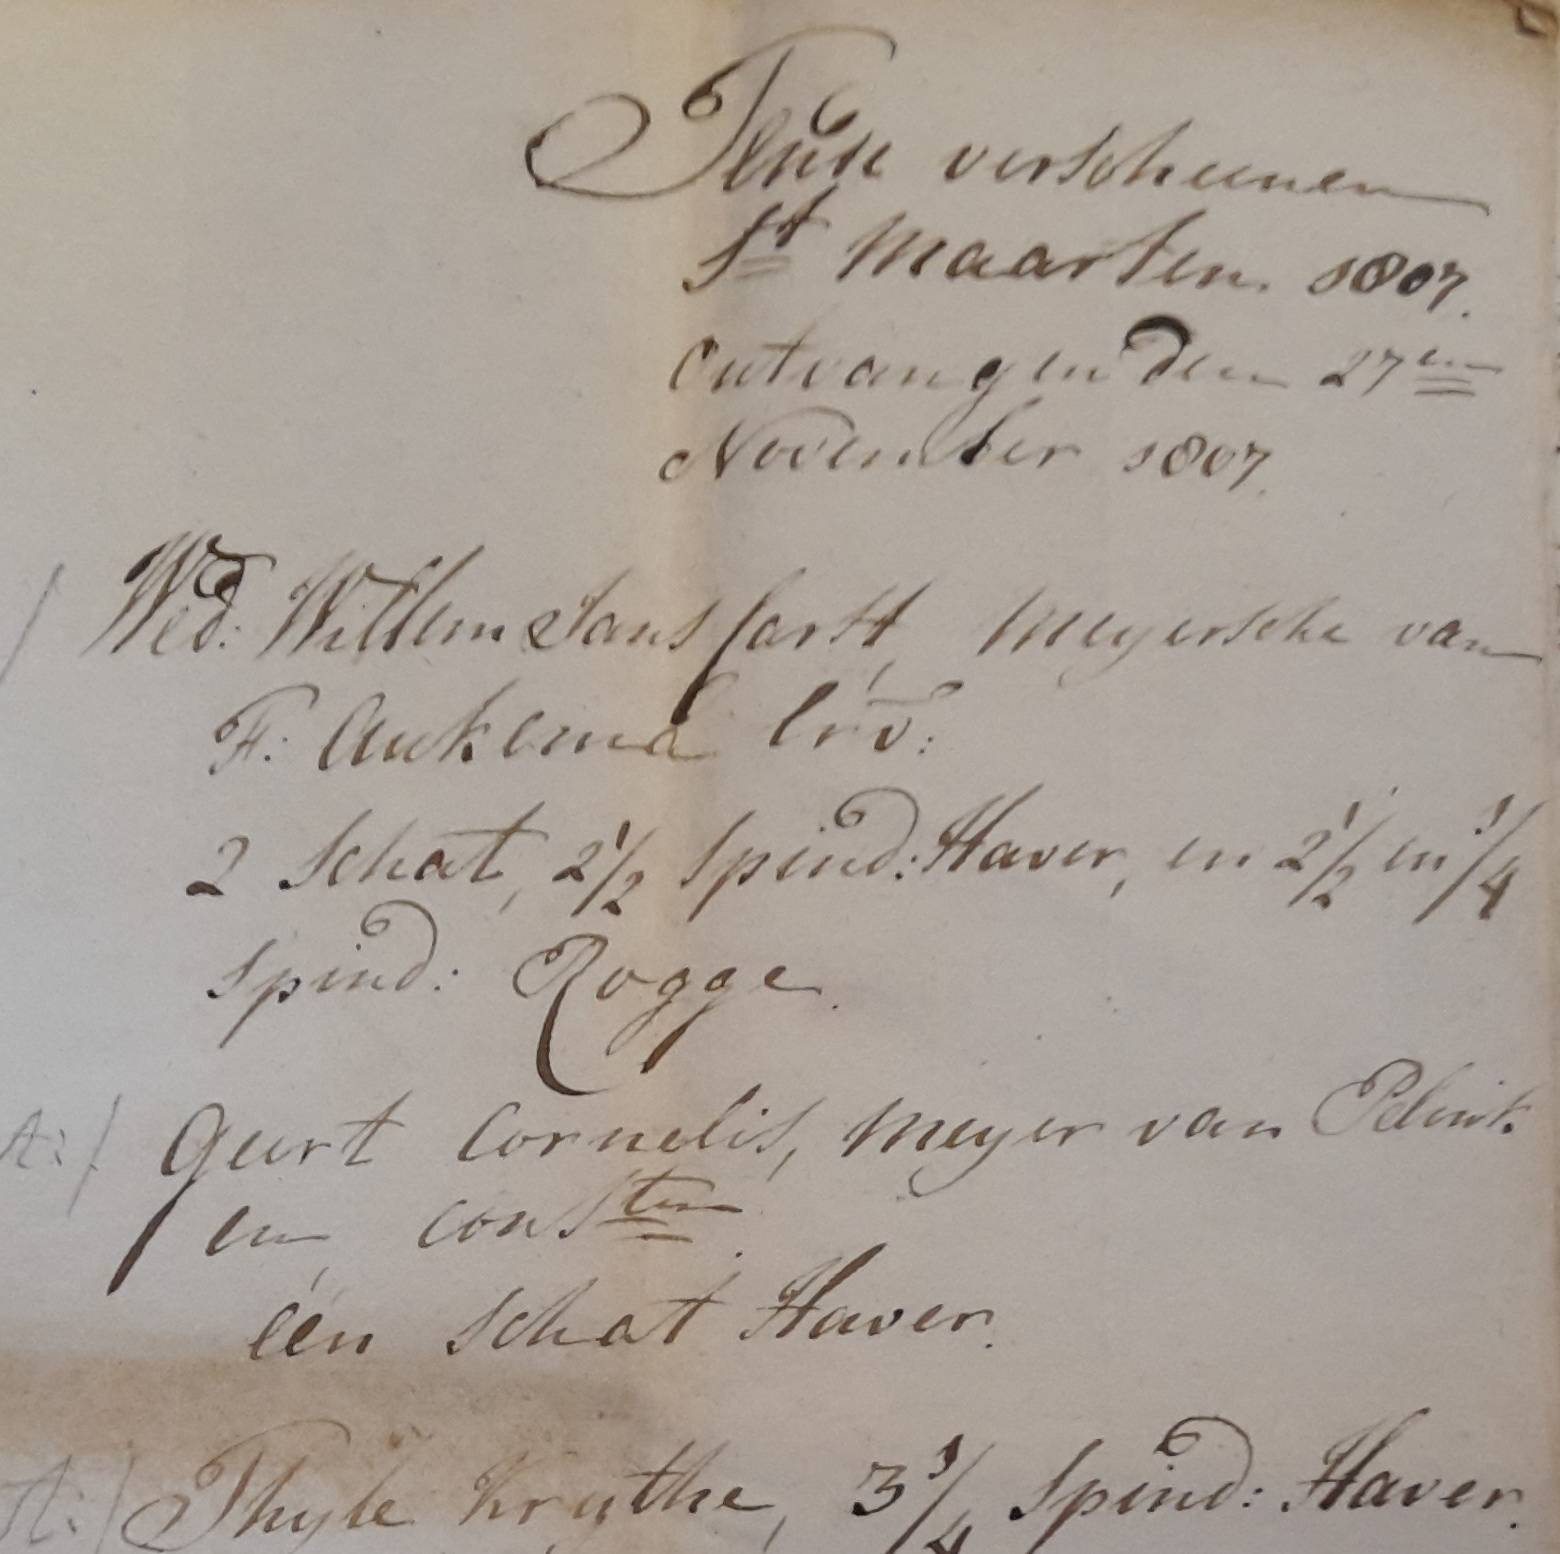 verscheenen
St Maarten 1807.
Ontvangen den 27en
November 1807.
Wed: Willem Jans Meyersche van
F. Aukema
2 Schat, 2 1/2 Spind: Haver, en 2 1/2 en 1/4
Spind: Rogge.
A:/ Geert Cornelis, Meyer van Pelink
en Consten
één Schat Haver.
A:/ Thyle Kruthe, 3 1/4 Spind: Haver.